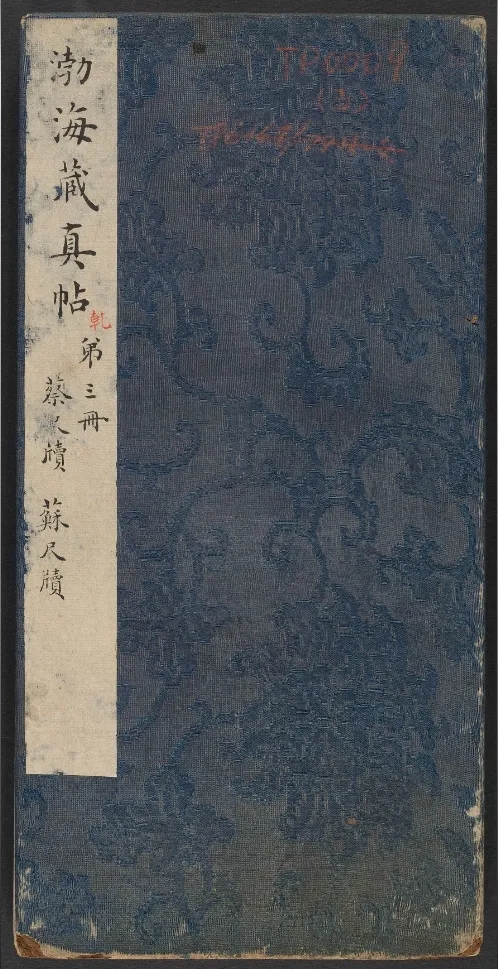 渤海藏真帖
乾
弟三冊
蔡尺牘 蘇尺牘
TD0009
(3)